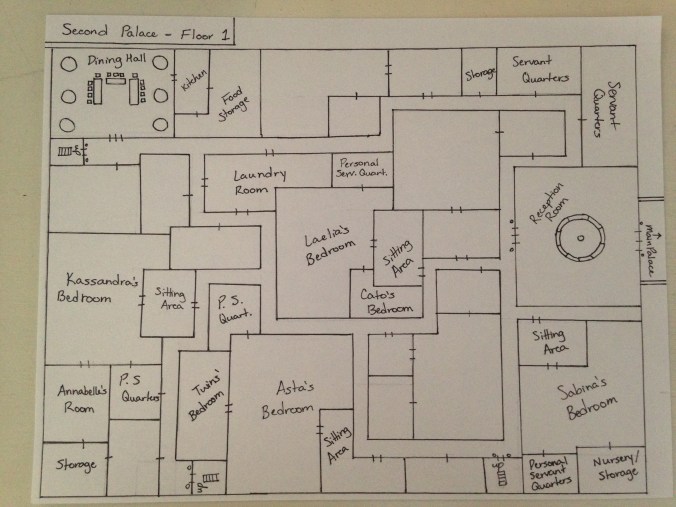 Second Palace - Floor 1
Dining Hall
Kitchen
Food
Storage
Storage
Servant
Quarters
Servant
Quarters
up
Laundry
Room
Personal
Serv. Quart.
Reception
Room
main Palace
Laelia's
Bedroom
Sitting
Area
Cato's
Bedroom
Kassandra's
Bedroom
Sitting
Area
P. S.
Quart.
Sitting
Area
Sabina's
Bedroom
Annabelle's
Room
P. S
Quarters
Twins'
Bedroom
Asta's
Bedroom
Sitting
Area
Storage
up
up
Personal
Servant
Quarters
Nursery/
Storage